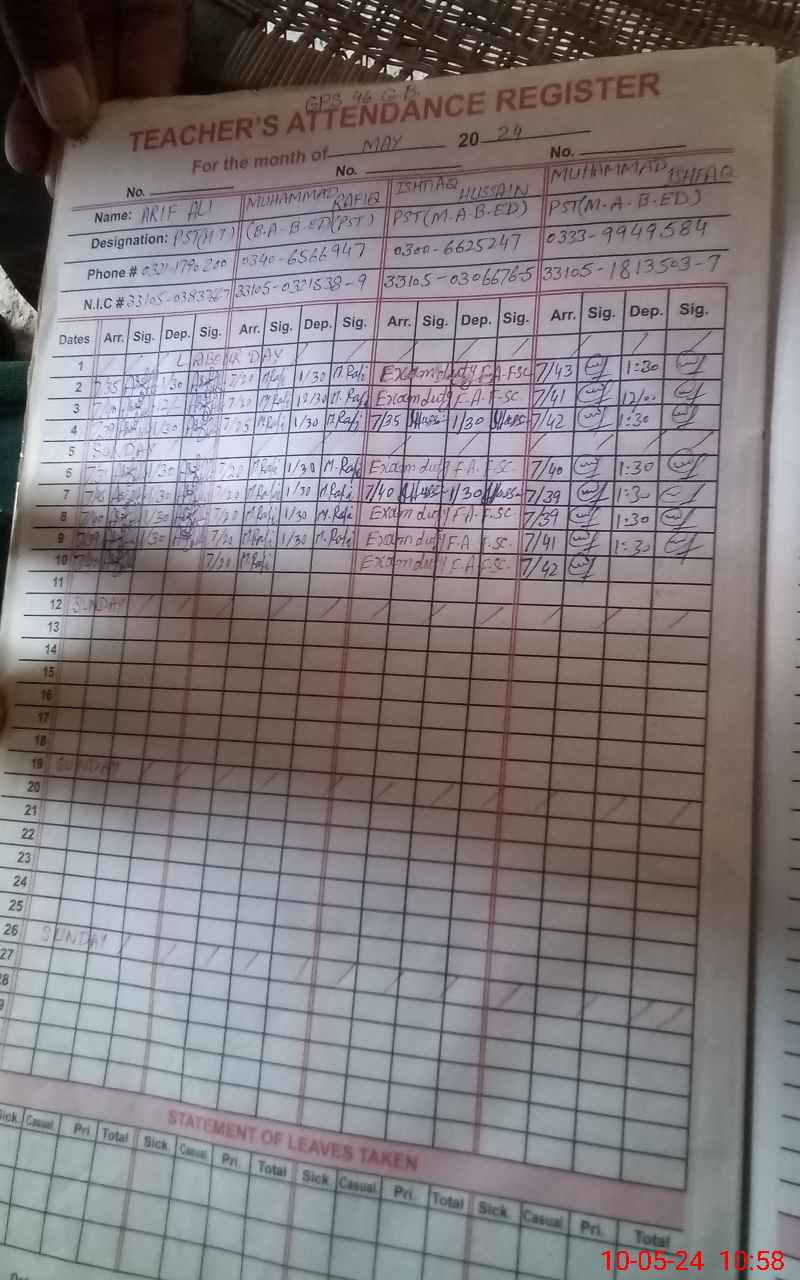 GPS 96 G.B.
TEACHER'S ATTENDANCE REGISTER
For the month of MAY 2024
No. No. No.
Name: ARIF ALI MUHAMMAD RAFIQ ISHTIAQ HUSSAIN MUHAMMAD ISHFAQ
Designation: PST(H.T) (B.A-B.ED)(PST) PST(M.A-B.ED) PST(M.A-B.ED)
Phone # 0340-6566947 0300-6625247 0333-9949584
N.I.C # 33105-0321538-9 33105-1813503-7
Dates Arr. Sig. Dep. Sig. Arr. Sig. Dep. Sig. Arr. Sig. Dep. Sig. Arr. Sig. Dep. Sig.
1 LABOUR DAY
2 7/35 1/30 7/20 M.Rafi 1/30 M.Rafi Exam duty F.A-FSC 7/43 1:30
3 7/20 M.Rafi 12/30 M.Rafi Exam duty F.A-F.SC. 7/41
4 1/30 7/25 M.Rafi 1/30 M.Rafi 7/35 1/30 7/42 1:30
5 SUNDAY
6 1/30 7/20 M.Rafi 1/30 M.Rafi Exam duty F.A-F.SC. 7/40 1:30
7 1/30 7/20 M.Rafi 1/30 M.Rafi 7/40 1/30 7/39 1:30
8 1/30 7/20 M.Rafi 1/30 M.Rafi Exam duty F.A-F.SC. 7/39 1:30
9 1/30 7/20 M.Rafi 1/30 M.Rafi Exam duty F.A F.SC. 7/41 1:30
10 7/20 M.Rafi Exam duty F.A F.SC. 7/42
11
12 SUNDAY
13
14
15
16
17
18
19 SUNDAY
20
21
22
23
24
25
26 SUNDAY
27
STATEMENT OF LEAVES TAKEN
Sick. Casual. Pri. Total Sick. Casual. Pri. Total Sick. Casual. Pri. Total Sick. Casual. Pri. Total
10-05-24 10:58